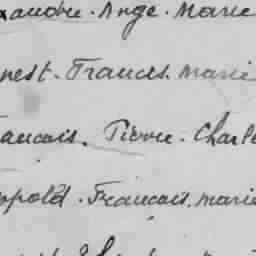 xandre. Ange. Marie
nest. Francis. Marie
rancois. Pierre. Charle
opold. Francois. Marie